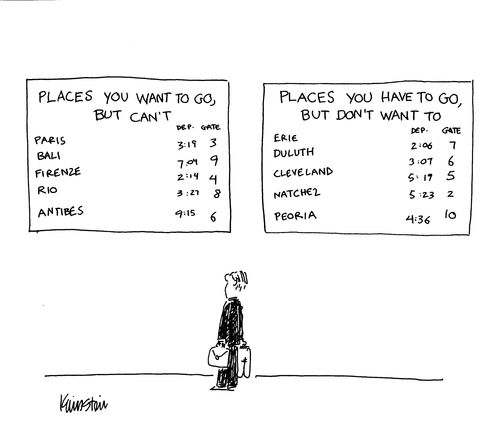 PLACES YOU WANT TO GO,
BUT CAN'T
DEP. GATE
PARIS 3:19 3
BALI 7:04 9
FIRENZE 2:14 4
RIO 3:27 8
ANTIBES 9:15 6
PLACES YOU HAVE TO GO,
BUT DON'T WANT TO
DEP. GATE
ERIE 2:06 7
DULUTH 3:07 6
CLEVELAND 5:19 5
NATCHEZ 5:23 2
PEORIA 4:36 10